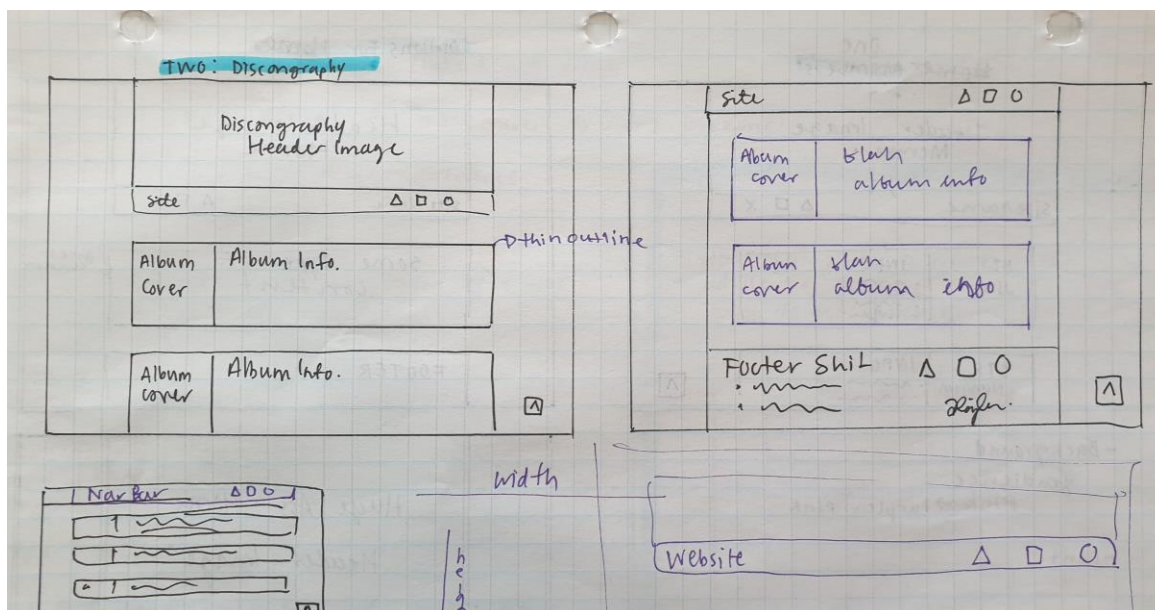 TWO: Discongraphy
Discongraphy
Header Image
site
thin outline
Album
Cover
Album Info.
Album
cover
Album Info.
Site
Abum
cover
blah
album info
Album
cover
blah
album info
Footer
NavBar
width
Website